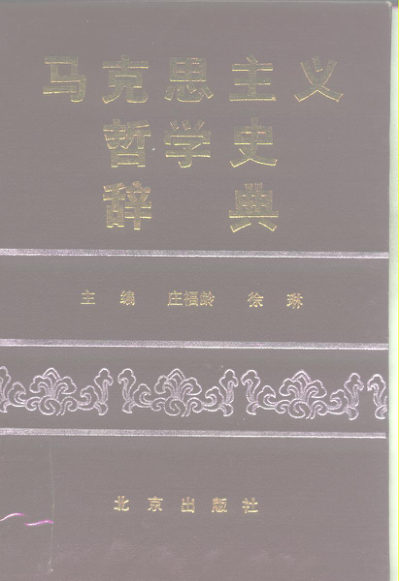 马克思主义
哲学史
辞典
主编 庄福龄 徐琳
北京出版社